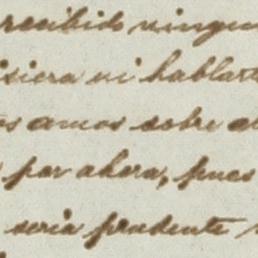 recibido ningun
isiera ni hablart
os amos sobre e
por ahora, pues
seria prudente